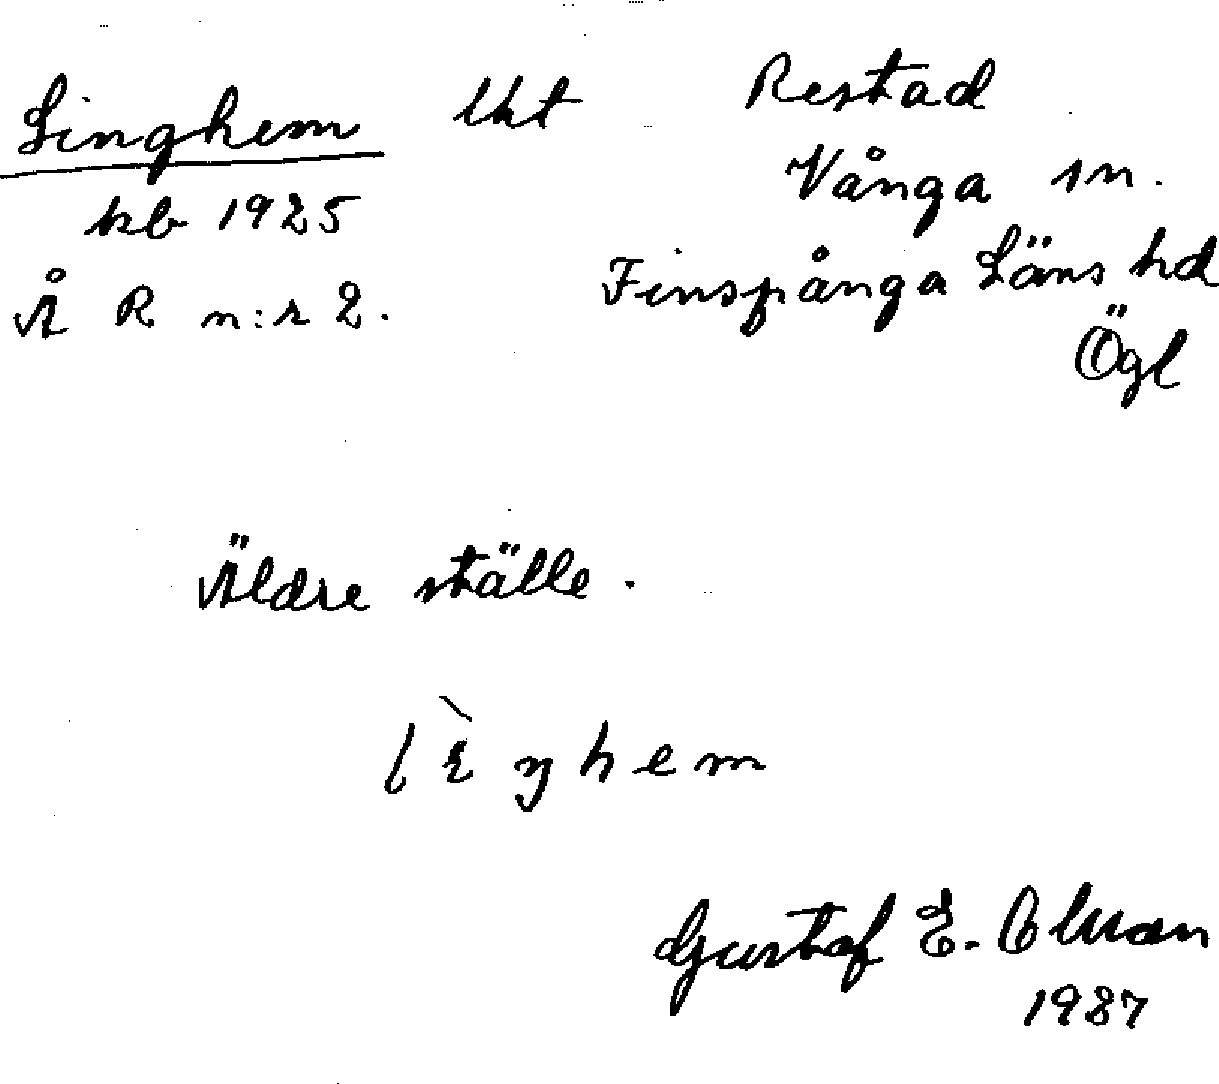 Linghem lht Restad
kb 1925 Vånga sn.
Å R n:r 2. Finspånga Läns hd
Ögl
Äldre ställe.
Gustaf E. Olsson
1937